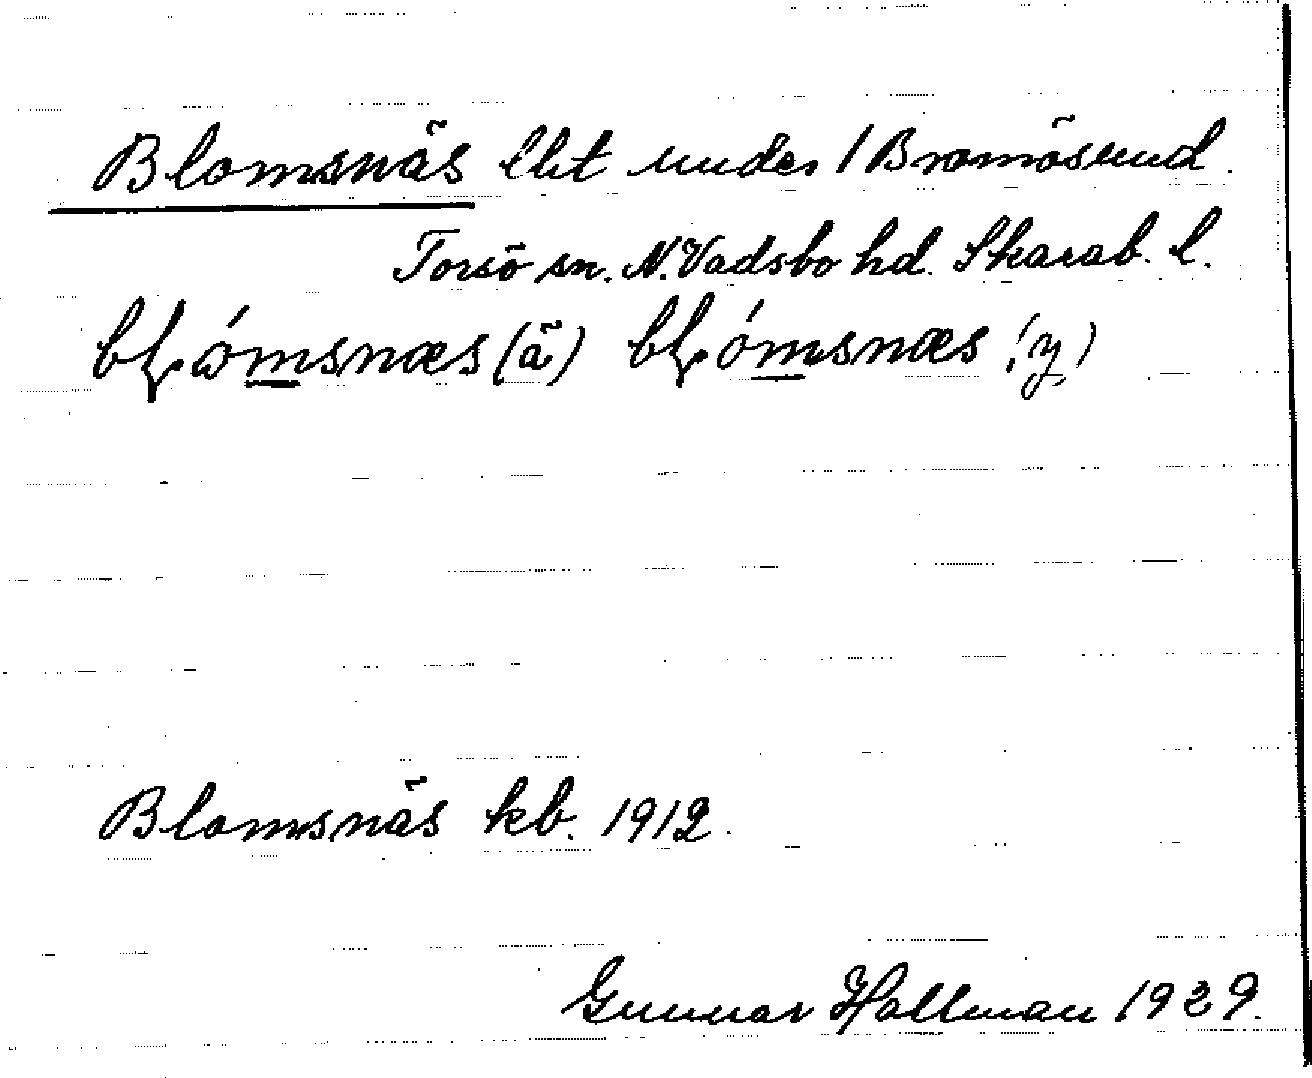 Blomsnäs lht under 1 Bromösund.
Torsö sn. N. Vadsbo hd. Skarab. l.
(ä) (y)
Blomsnäs kb. 1912.
Gunnar Hallman 1929.